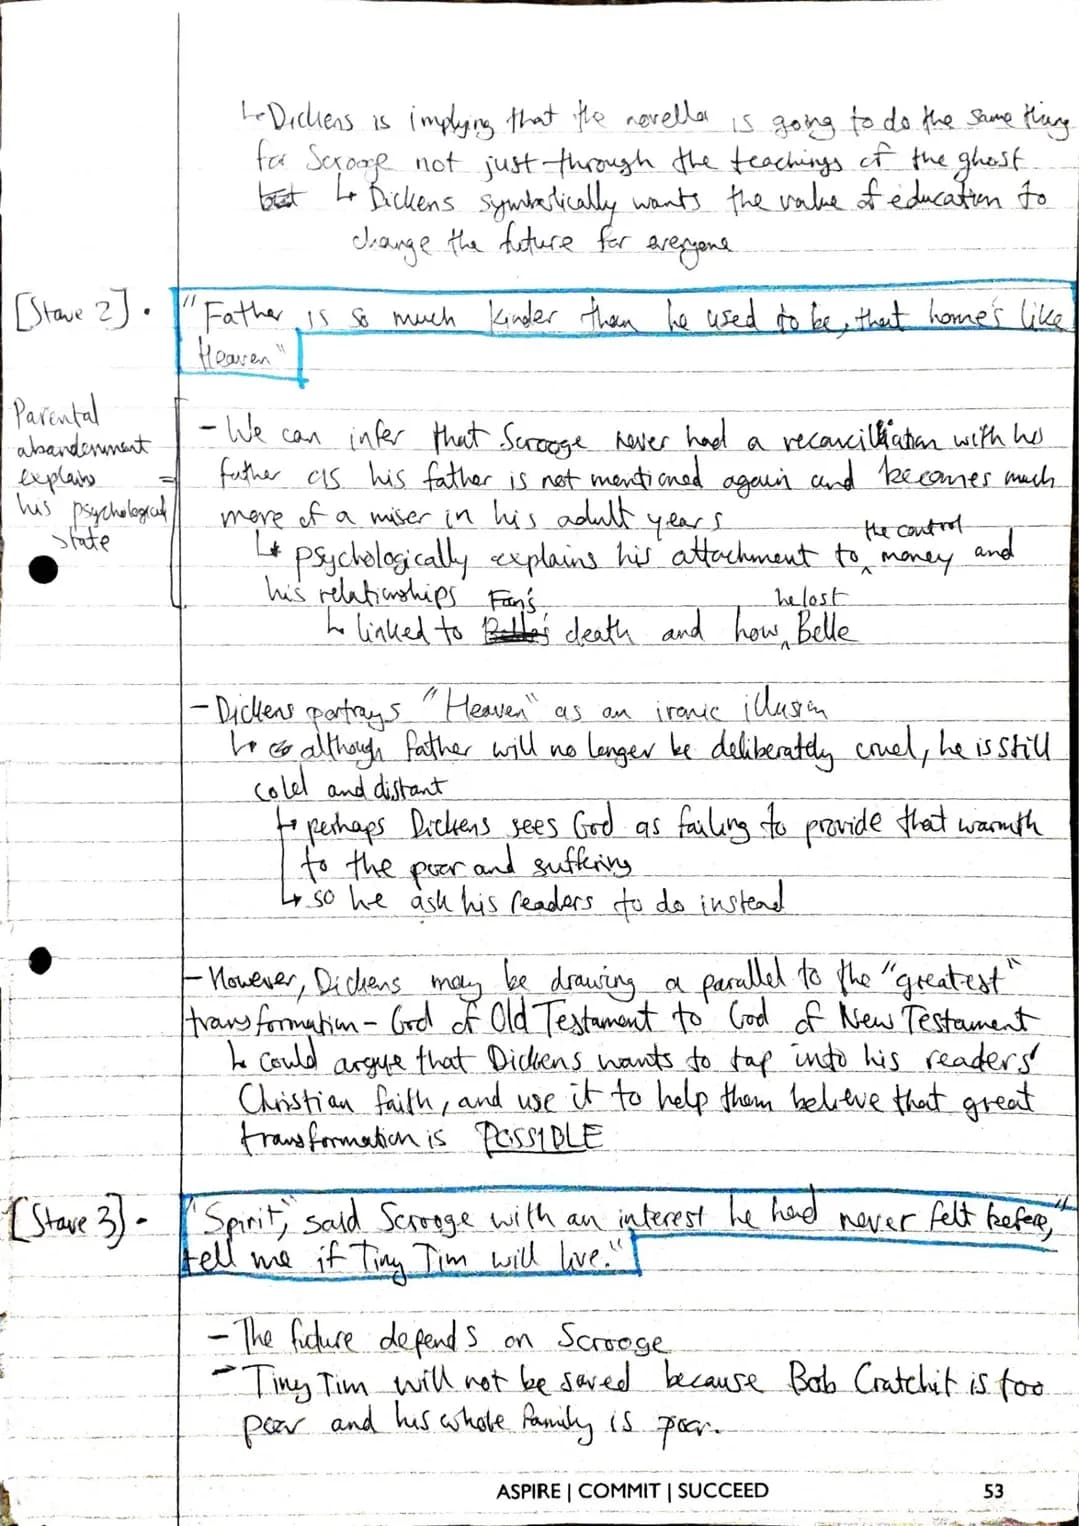 ↳ Dickens is implying that the novella is going to do the same thing
for Scrooge not just through the teachings of the ghost
but ↳ Dickens symbolically wants the value of education to
change the future for everyone
[Stave 2] • "Father is so much kinder than he used to be, that home's like
Heaven"
Parental
abandonment
explains
his psychological
state
- We can infer that Scrooge never had a reconciliation with his
father as his father is not mentioned again and becomes much
more of a miser in his adult years
↳ psychologically explains his attachment to ^ the control money and
his relationships
↳ linked to Belle's Fan's death and how ^ he lost Belle
- Dickens portrays "Heaven" as an ironic illusion
↳ although father will no longer be deliberately cruel, he is still
cold and distant
↳ perhaps Dickens sees God as failing to provide that warmth
to the poor and suffering
↳ so he ask his readers to do instead
- However, Dickens may be drawing a parallel to the "greatest"
transformation - God of Old Testament to God of New Testament
↳ could argue that Dickens wants to tap into his readers'
Christian faith, and use it to help them believe that great
transformation is POSSIBLE
[Stave 3] - "Spirit," said Scrooge with an interest he had never felt before, "
tell me if Tiny Tim will live."
- The future depends on Scrooge
- Tiny Tim will not be saved because Bob Cratchit is too
poor and his whole family is poor.
ASPIRE | COMMIT | SUCCEED 53